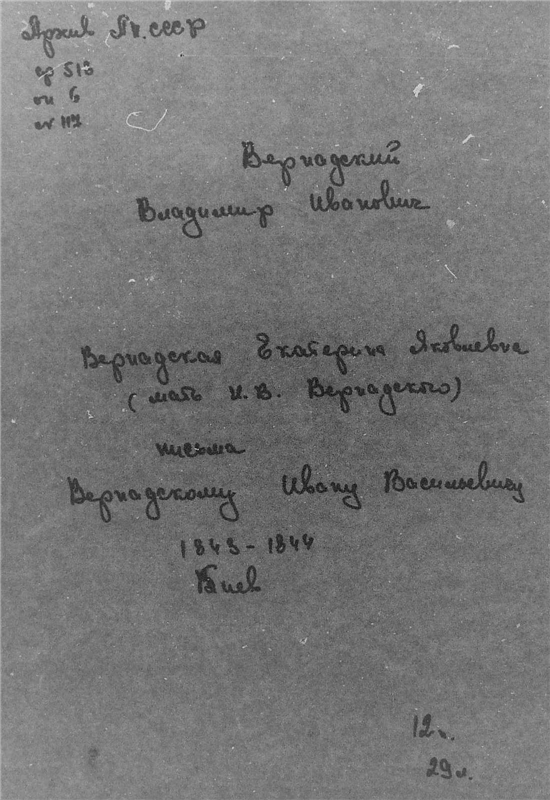 Архив АН. СССР
ф 518
оп 6
ег 117
Вернадский
Владимир Иванович
Вернадская Екатерина Яковлевна
(мать И.В. Вернадского)
письма
Вернадскому Ивану Васильевичу
1843-1844
Киев
12 п.
29 л.